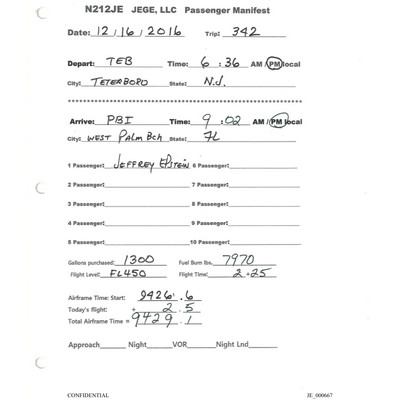 N212JE JEGE, LLC Passenger Manifest
Date: 12/16/2016 Trip: 342
Depart: TEB Time: 6:36 AM / PM local
City: TETERBORO State: N.J.
Arrive: PBI Time: 9:02 AM / PM local
City: WEST PALM BCH State: FL
1 Passenger: JEFFREY EPSTEIN 6 Passenger:
2 Passenger: 7 Passenger:
3 Passenger: 8 Passenger:
4 Passenger: 9 Passenger:
5 Passenger: 10 Passenger:
Gallons purchased: 1300 Fuel Burn lbs. 7970
Flight Level: FL450 Flight Time: 2+25
Airframe Time: Start: 9426.6
Today's flight: + 2.5
Total Airframe Time = 9429.1
Approach Night VOR Night Lnd
CONFIDENTIAL JE_000667